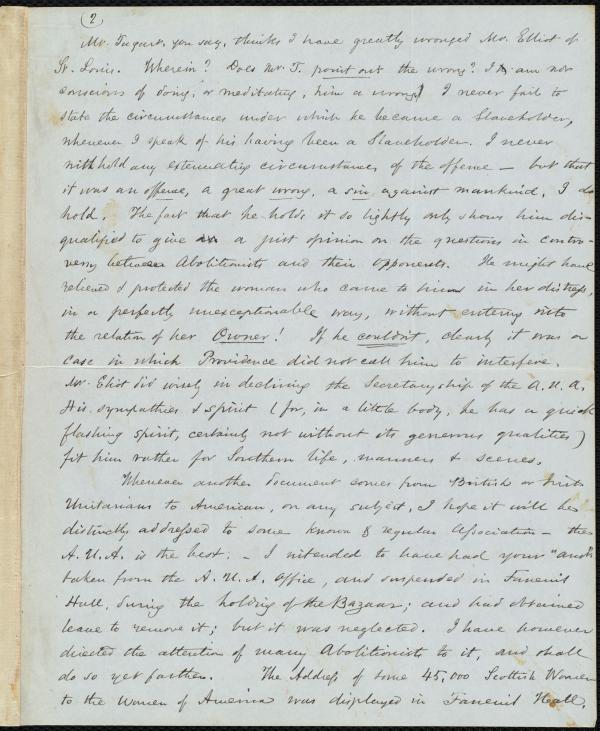 (2)
Mr. Tagart, you say, thinks I have greatly wronged Mr. Elliot of
St. Louis. Wherein? Does Mr. T. point out the wrong? I am not
conscious of doing, or meditating, him a wrong. I never fail to
state the circumstances under which he became a Slaveholder,
whenever I speak of his having been a Slaveholder. I never
withhold any extenuating circumstances of the offense — but that
it was an offense, a great wrong, a sin against mankind, I do
hold. The fact that he holds it so lightly only shows him dis-
qualified to give a just opinion on the questions in contro-
versy between Abolitionists and their opponents. He might have
relieved & protected the woman who came to him in her distress,
in a perfectly unexceptionable way, without entering into
the relation of her Owner! If he couldn't, clearly it was a
case in which Providence did not call him to interfere.
Mr. Eliot did wisely in declining the Secretaryship of the A. U. A.
His sympathies & spirit (for, in a little body, he has a quick
flashing spirit, certainly not without its generous qualities)
fit him rather for Southern life, manners & scenes.
Whenever another document comes from British or Irish
Unitarians to American, on any subject, I hope it will be
distinctly addressed to some known & regular Association — the
A. U. A. is the best. — I intended to have had your
taken from the A. U. A. office, and suspended in Faneuil
Hall, during the holding of the Bazaar; and had obtained
leave to remove it; but it was neglected. I have however
directed the attention of many Abolitionists to it, and shall
do so yet farther. The Address of some 45,000 Scottish Women
to the Women of America was displayed in Faneuil Hall,